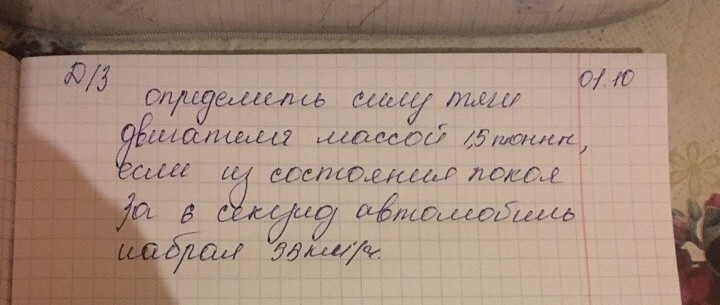 Д/З 01.10
определить силу тяги
двигателя массой 1,5 тонны,
если из состояния покоя
за 6 секунд автомобиль
набрал км/ч.